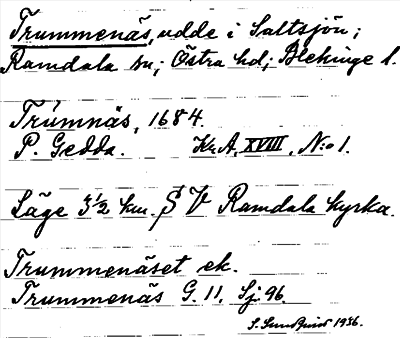 Trummenäs, udde i Saltsjön;
Ramdala sn; Östra hd; Blekinge l.
Trumnäs, 1684.
P. Gedda. Kr.A. XVIII, N:o 1.
Läge 3½ km. S V Ramdala kyrka.
Trummenäset ek.
Trummenäs G. 11, Sj. 96.
S. Sundquist 1936.